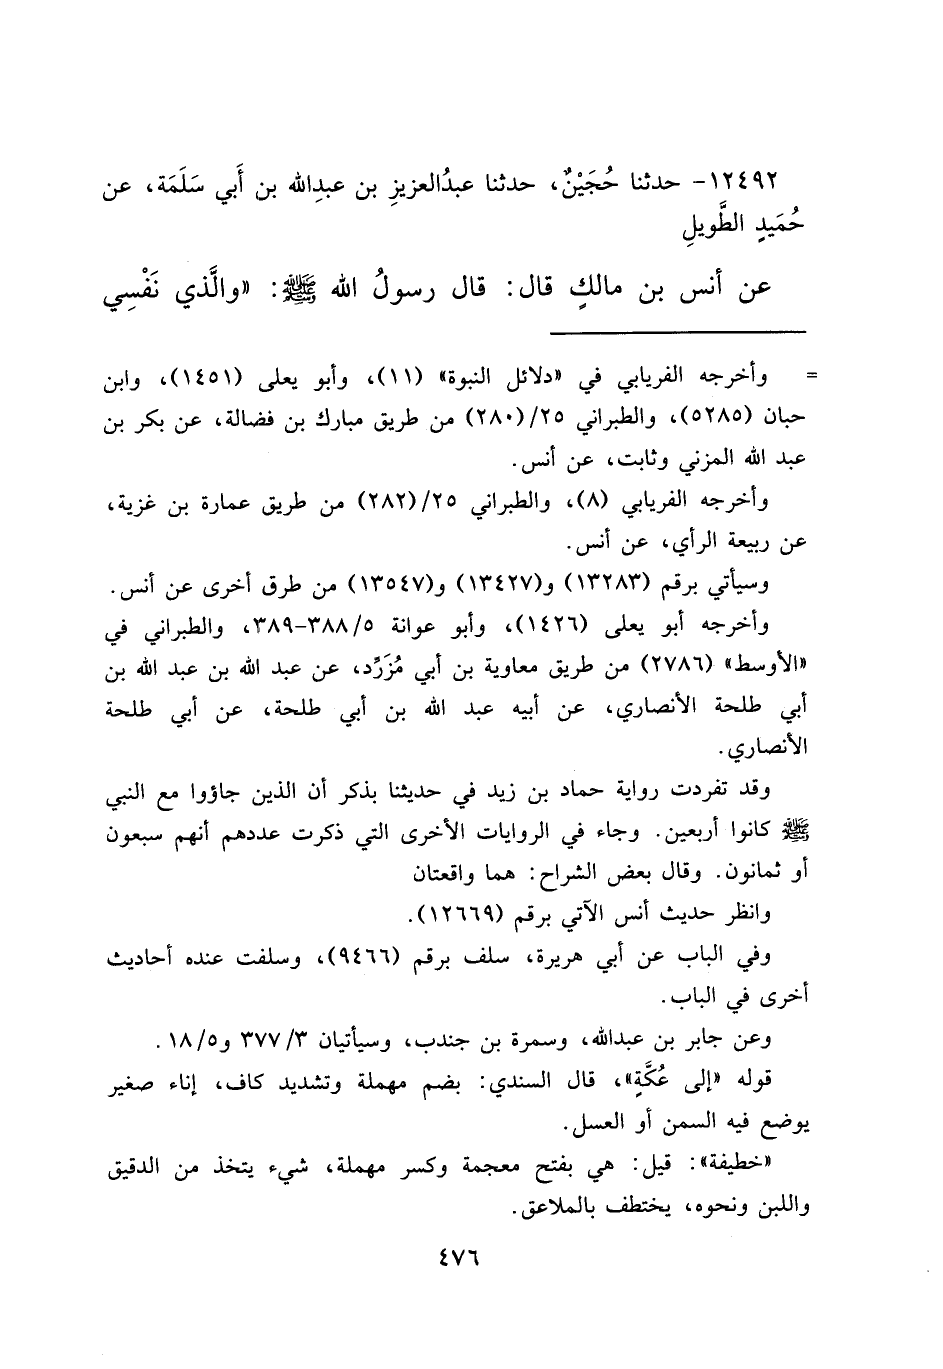 ١٢٤٩٢- حدثنا حُجَيْنٌ، حدثنا عبدُالعزيزِ بن عبدِالله بن أَبي سَلَمَة، عن
حُمَيدٍ الطَّويلِ
عن أنس بن مالكٍ قال: قال رسولُ الله ﷺ: «والَّذي نَفْسِي
= وأخرجه الفريابي في «دلائل النبوة» (١١)، وأبو يعلى (١٤٥١)، وابن
حبان (٥٢٨٥)، والطبراني ٢٥/(٢٨٠) من طريق مبارك بن فضالة، عن بكر بن
عبد الله المزني وثابت، عن أنس.
وأخرجه الفريابي (٨)، والطبراني ٢٥/(٢٨٢) من طريق عمارة بن غزية،
عن ربيعة الرأي، عن أنس.
وسيأتي برقم (١٣٢٨٣) و(١٣٤٢٧) و(١٣٥٤٧) من طرق أخرى عن أنس.
وأخرجه أبو يعلى (١٤٢٦)، وأبو عوانة ٥/٣٨٨-٣٨٩، والطبراني في
«الأوسط» (٢٧٨٦) من طريق معاوية بن أبي مُزَرِّد، عن عبد الله بن عبد الله بن
أبي طلحة الأنصاري، عن أبيه عبد الله بن أبي طلحة، عن أبي طلحة
الأنصاري.
وقد تفردت رواية حماد بن زيد في حديثنا بذكر أن الذين جاؤوا مع النبي
ﷺ كانوا أربعين. وجاء في الروايات الأخرى التي ذكرت عددهم أنهم سبعون
أو ثمانون. وقال بعض الشراح: هما واقعتان
وانظر حديث أنس الآتي برقم (١٢٦٦٩).
وفي الباب عن أبي هريرة، سلف برقم (٩٤٦٦)، وسلفت عنده أحاديث
أخرى في الباب.
وعن جابر بن عبدالله، وسمرة بن جندب، وسيأتيان ٣/٣٧٧ و٥/١٨.
قوله «إلى عُكَّةٍ»، قال السندي: بضم مهملة وتشديد كاف، إناء صغير
يوضع فيه السمن أو العسل.
«خطيفة»: قيل: هي بفتح معجمة وكسر مهملة، شيء يتخذ من الدقيق
واللبن ونحوه، يختطف بالملاعق.
٤٧٦